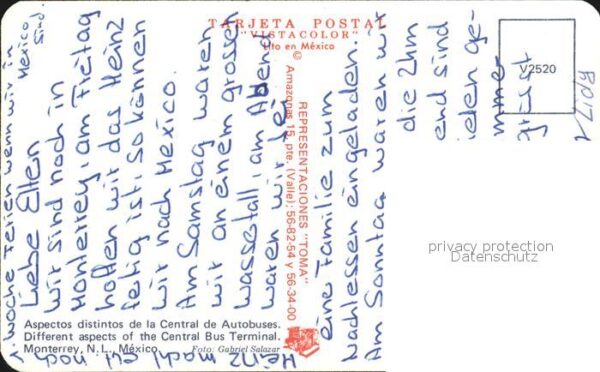 TARJETA POSTAL
"VISTACOLOR"
Hecho en México
©
REPRESENTACIONES "TOMA"
Amazonas 15, pte. (Valle); 56-82-54 y 56-34-00
V2520
Liebe Eltern
Wir sind noch in
Monterrey, am Freitag
hoffen wir das Heinz
fertig ist. So können
wir nach Mexico.
Am Samstag waren
wir an einem grossen
Wasserfall, am Abend
waren wir bei
eine Familie zum
Nachtessen eingeladen.
Am Sonntag waren wir
die
end sind
ge-
Heinz macht noch
1 Woche Ferien wenn wir in
Mexico
sind.
privacy protection
Datenschutz
Aspectos distintos de la Central de Autobuses.
Different aspects of the Central Bus Terminal.
Monterrey, N. L., México. Foto: Gabriel Salazar